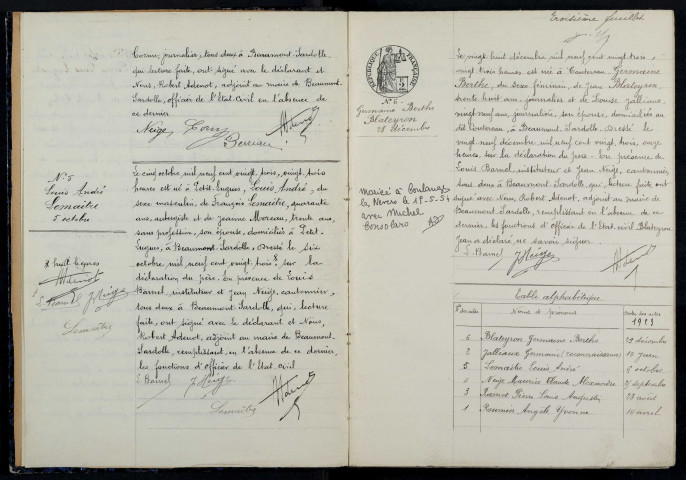 journalier, tous deux à Beaumont Sardolle
qui lecture faite, ont signé avec le déclarant et
Nous, Robert Adenot, adjoint au maire de Beaumont
Sardolle, officier de l'Etat Civil en l'absence de
ce dernier
Neige
N° 5
Louis André
Lemaître
5 octobre
Lemaître
Le cinq octobre mil neuf cent vingt trois, vingt trois
heures est né à Petit Lugues, Louis André, du
sexe masculin, de François Lemaître, quarante
ans, aubergiste et de Jeanne Moreau, trente ans,
sans profession, son épouse, domiciliés à Petit
Lugues, à Beaumont Sardolle. Dressé le six
octobre mil neuf cent vingt trois, sur la
déclaration du père. En présence de Louis
Barnel, instituteur et Jean Neige, cantonnier,
tous deux à Beaumont Sardolle, qui, lecture
faite, ont signé avec le déclarant et Nous,
Robert Adenot, adjoint au maire de Beaumont
Sardolle, remplissant en l'absence de ce dernier
les fonctions d'officier de l'Etat civil
L. Barnel J. Neige
Lemaître
Troisième feuillet
REPUBLIQUE FRANÇAISE
N° 6
Germaine Berthe
Blateyron
28 décembre
Mariée à Coulanges
les Nevers le
avec Michel
Le vingt huit décembre mil neuf cent vingt trois,
vingt trois heures est née à Coutereau Germaine
Berthe, du sexe féminin, de Jean Blateyron,
trente huit ans, journalier et de Louise Jalliaux,
vingt neuf ans, journalière, son épouse, domiciliés au
dit Coutereau, à Beaumont Sardolle. Dressé le
vingt neuf décembre mil neuf cent vingt trois, onze
heures, sur la déclaration du père. En présence de
Louis Barnel, instituteur et Jean Neige, cantonnier,
tous deux à Beaumont Sardolle, qui, lecture faite, ont
signé avec Nous, Robert Adenot, adjoint au maire de
Beaumont Sardolle, remplissant en l'absence de ce
dernier les fonctions d'officier de l'Etat civil. Blateyron
Jean a déclaré ne savoir signer.
L. Barnel J. Neige
Table alphabétique
Noms et prénoms
1923
6 Blateyron Germaine Berthe 29 décembre
2 Jalliaux Germaine (reconnaissance) 10 juin
5 Lemaitre Louis André 6 octobre
4 Neige Maurice Claude Alexandre 2 septembre
3 Pierre Louis Auguste 23 août
1 Angèle Yvonne 10 avril